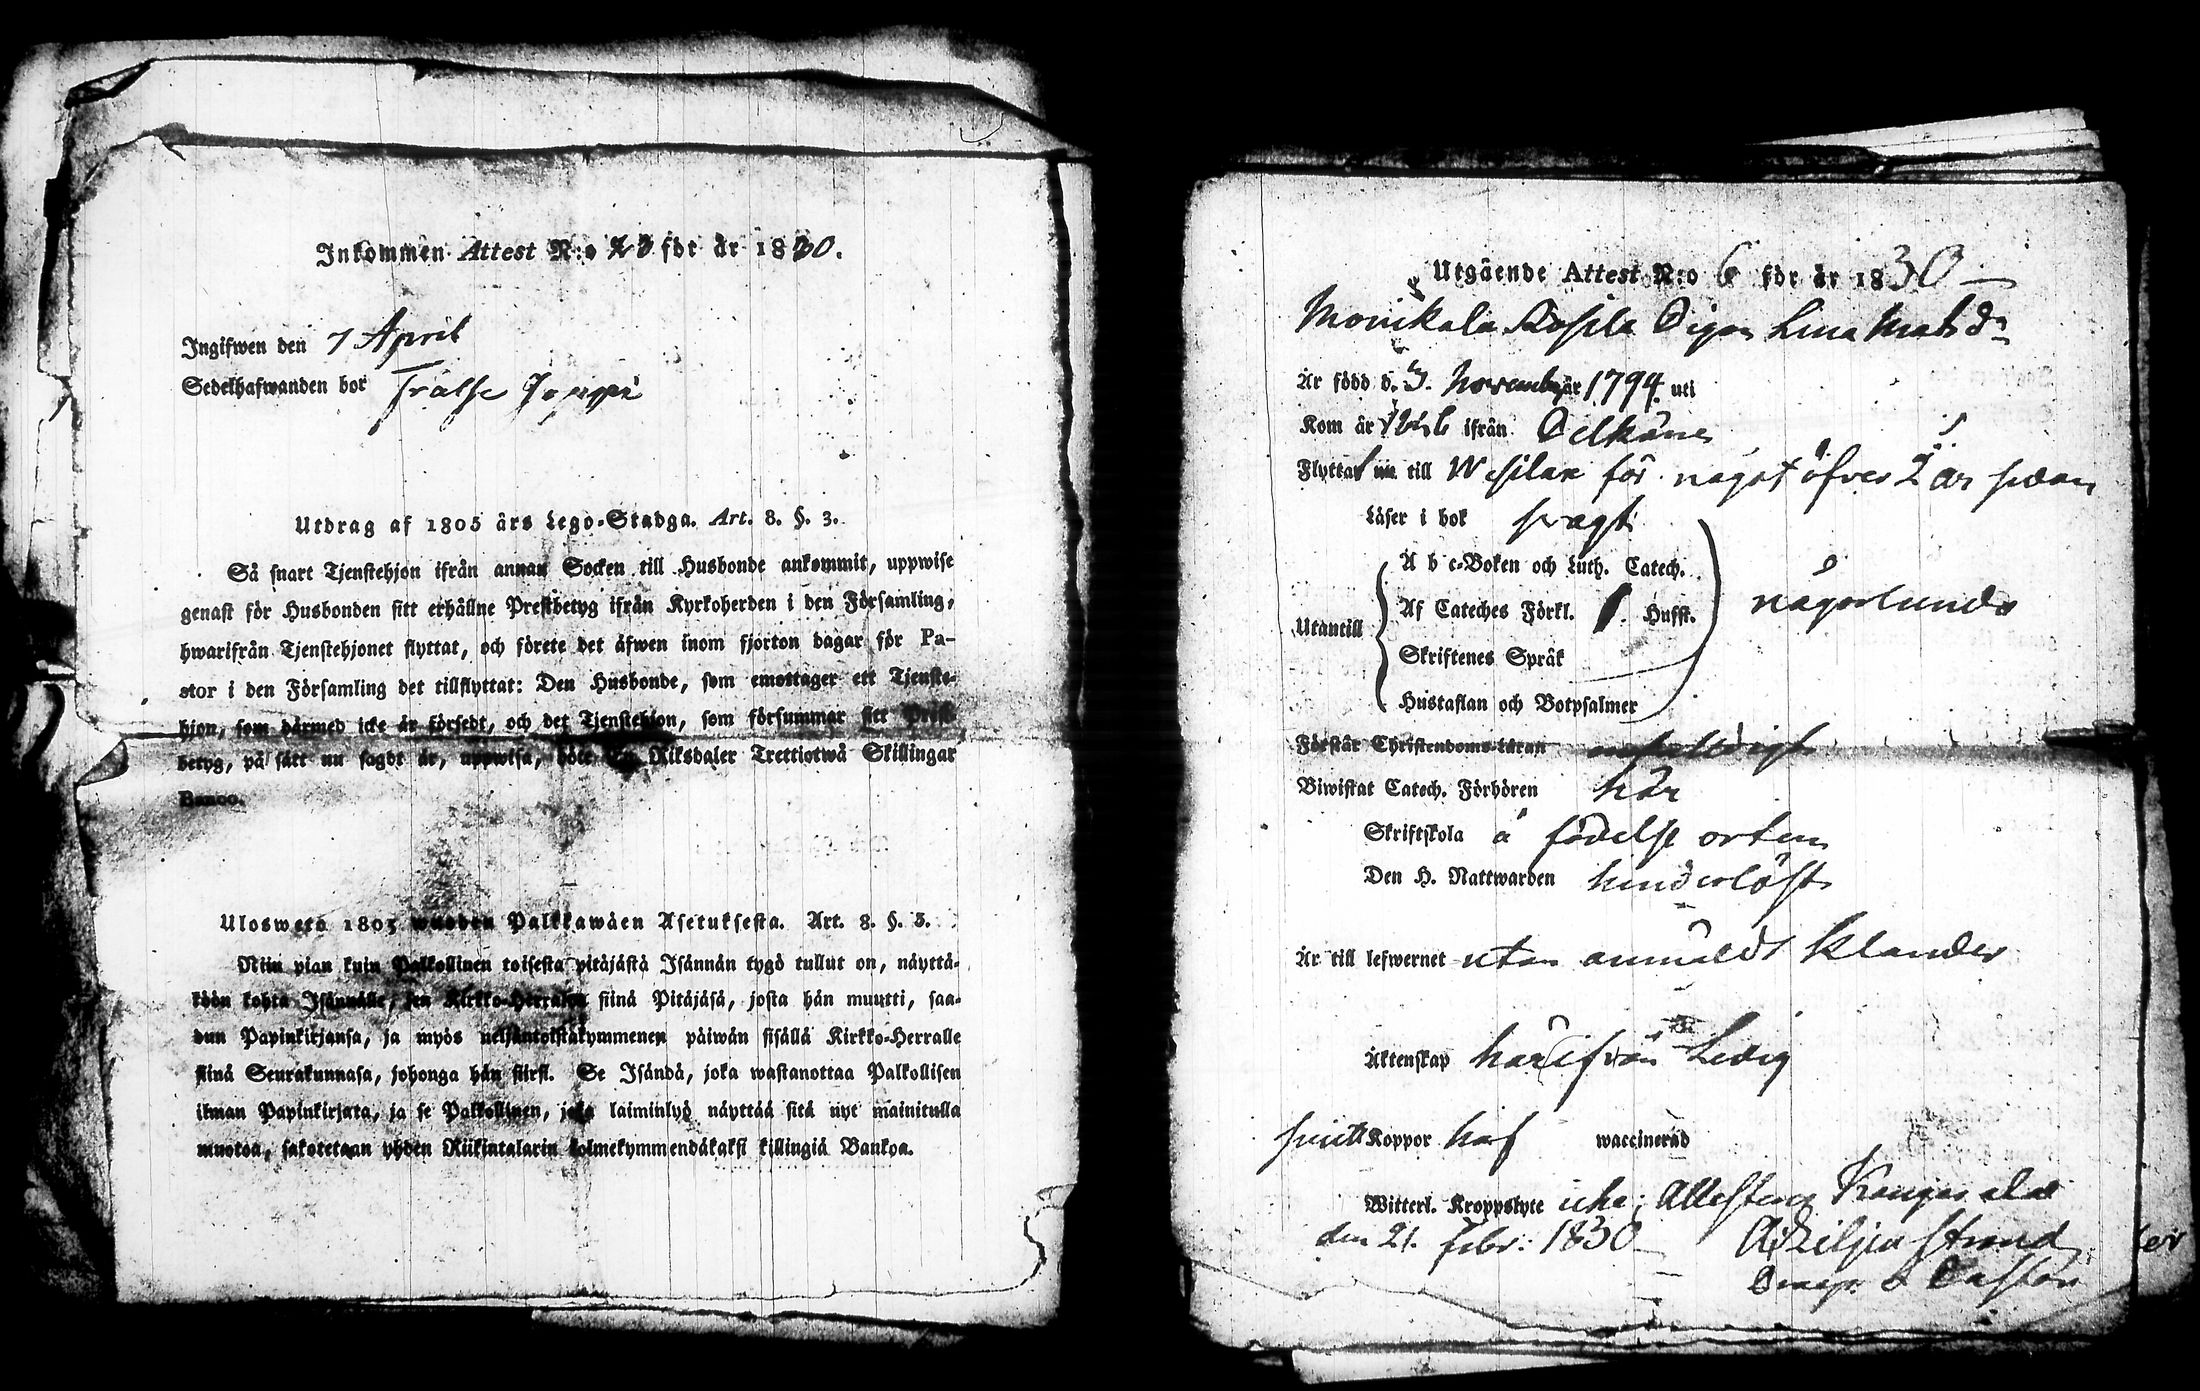 Inkommen Attest N:o 23 för år 1830.
Ingifwen den 7 April
Sedelhafwanden bor Trälse Jouppi
Utdrag af 1805 års Lego-Stadga. Art. 8. §. 3.
Så snart Tjenstehjon ifrån annan Socken till Husbonde ankommit, uppwise
genast för Husbonden sitt erhållne Prestbetyg ifrån Kyrkoherden i den Församling,
hwarifrån Tjenstehjonet flyttat, och förete det äfwen inom fjorton dagar för Pa-
stor i den Församling det tillflyttat: Den Husbonde, som emottager ett Tjenste-
hjon, som därmed icke är försedt, och det Tjenstehjon, som försummar sitt Prest-
betyg, på sätt nu sagdt är, uppwisa, böte En Riksdaler Trettiotwå Skillingar
Banco.
Ulosweto 1805 wuoden Palkkawäen Asetuksesta. Art. 8. §. 3.
Niin pian kuin Palkollinen toisesta pitäjästä Isännän tygö tullut on, näyttä-
köön kohta Isännälle, sen Kirkko-Herralta siinä Pitäjäsä, josta hän muutti, saa-
dun Papinkirjansa, ja myös neljäntoistakymmenen päiwän sisällä Kirkko-Herralle
siinä Seurakunnasa, johonga hän siirsi. Se Isändä, joka wastanottaa Palkollisen
ilman Papinkirjata, ja se Palkollinen, joka laiminlyö näyttää sitä nyt mainitulla
muotoa, sakotetaan yhden Riikintalarin kolmekymmendäkaksi killingiä Bankoa.
Utgående Attest N:o 6 för år 1830
Monikala Rosila Pigan Lena Matsdr
Är född d. 3. November år 1794 uti
Kom år 1826 ifrån Pelkäne
Flyttat nu till Wesilax för något öfver 2 år sedan
Läser i bok svagt
Utantill
A b c-Boken och Luth. Catech.
Af Cateches Förkl. 1. Hufst.
Skriftenes Språk
Hustaflan och Botpsalmer
någorlunda
Förstår Christendoms-Läran enfaldigt
Biwistat Catech. Förhören här
Skriftskola å födelse orten
Den H. Nattwarden hinderlöst
Är till lefwernet utan anmäldt klander
Äktenskap härifrån Ledig
Koppor haft waccinerad
Witterl. Kroppslyte icke; Attesterar Kangasala
den 21. Febr: 1830
A: Liljestrand